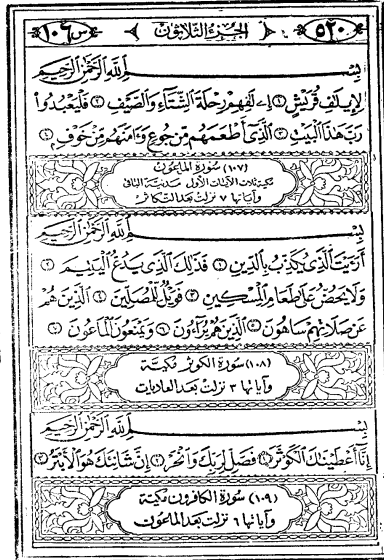 ٥٢٠ الجزء الثلاثون س ١٠٦
بِسْمِ اللَّهِ الرَّحْمَٰنِ الرَّحِيمِ
لِإِيلَٰفِ قُرَيْشٍ ١ إِۦلَٰفِهِمْ رِحْلَةَ الشِّتَآءِ وَالصَّيْفِ ٢ فَلْيَعْبُدُوا
رَبَّ هَٰذَا الْبَيْتِ ٣ الَّذِىٓ أَطْعَمَهُم مِّن جُوعٍ وَءَامَنَهُم مِّنْ خَوْفٍ ٤
(١٠٧) سورة الماعون
مكية ثلاث الآيات الأول مدنية الباقى
وآياتها ٧ نزلت بعد التكاثر
بِسْمِ اللَّهِ الرَّحْمَٰنِ الرَّحِيمِ
أَرَءَيْتَ الَّذِى يُكَذِّبُ بِالدِّينِ ١ فَذَٰلِكَ الَّذِى يَدُعُّ الْيَتِيمَ ٢
وَلَا يَحُضُّ عَلَىٰ طَعَامِ الْمِسْكِينِ ٣ فَوَيْلٌ لِّلْمُصَلِّينَ ٤ الَّذِينَ هُمْ
عَن صَلَاتِهِمْ سَاهُونَ ٥ الَّذِينَ هُمْ يُرَآءُونَ ٦ وَيَمْنَعُونَ الْمَاعُونَ ٧
(١٠٨) سورة الكوثر مكية
وآياتها ٣ نزلت بعد العاديات
بِسْمِ اللَّهِ الرَّحْمَٰنِ الرَّحِيمِ
إِنَّآ أَعْطَيْنَاكَ الْكَوْثَرَ ١ فَصَلِّ لِرَبِّكَ وَانْحَرْ ٢ إِنَّ شَانِئَكَ هُوَ الْأَبْتَرُ ٣
(١٠٩) سورة الكافرون مكية
وآياتها ٦ نزلت بعد الماعون